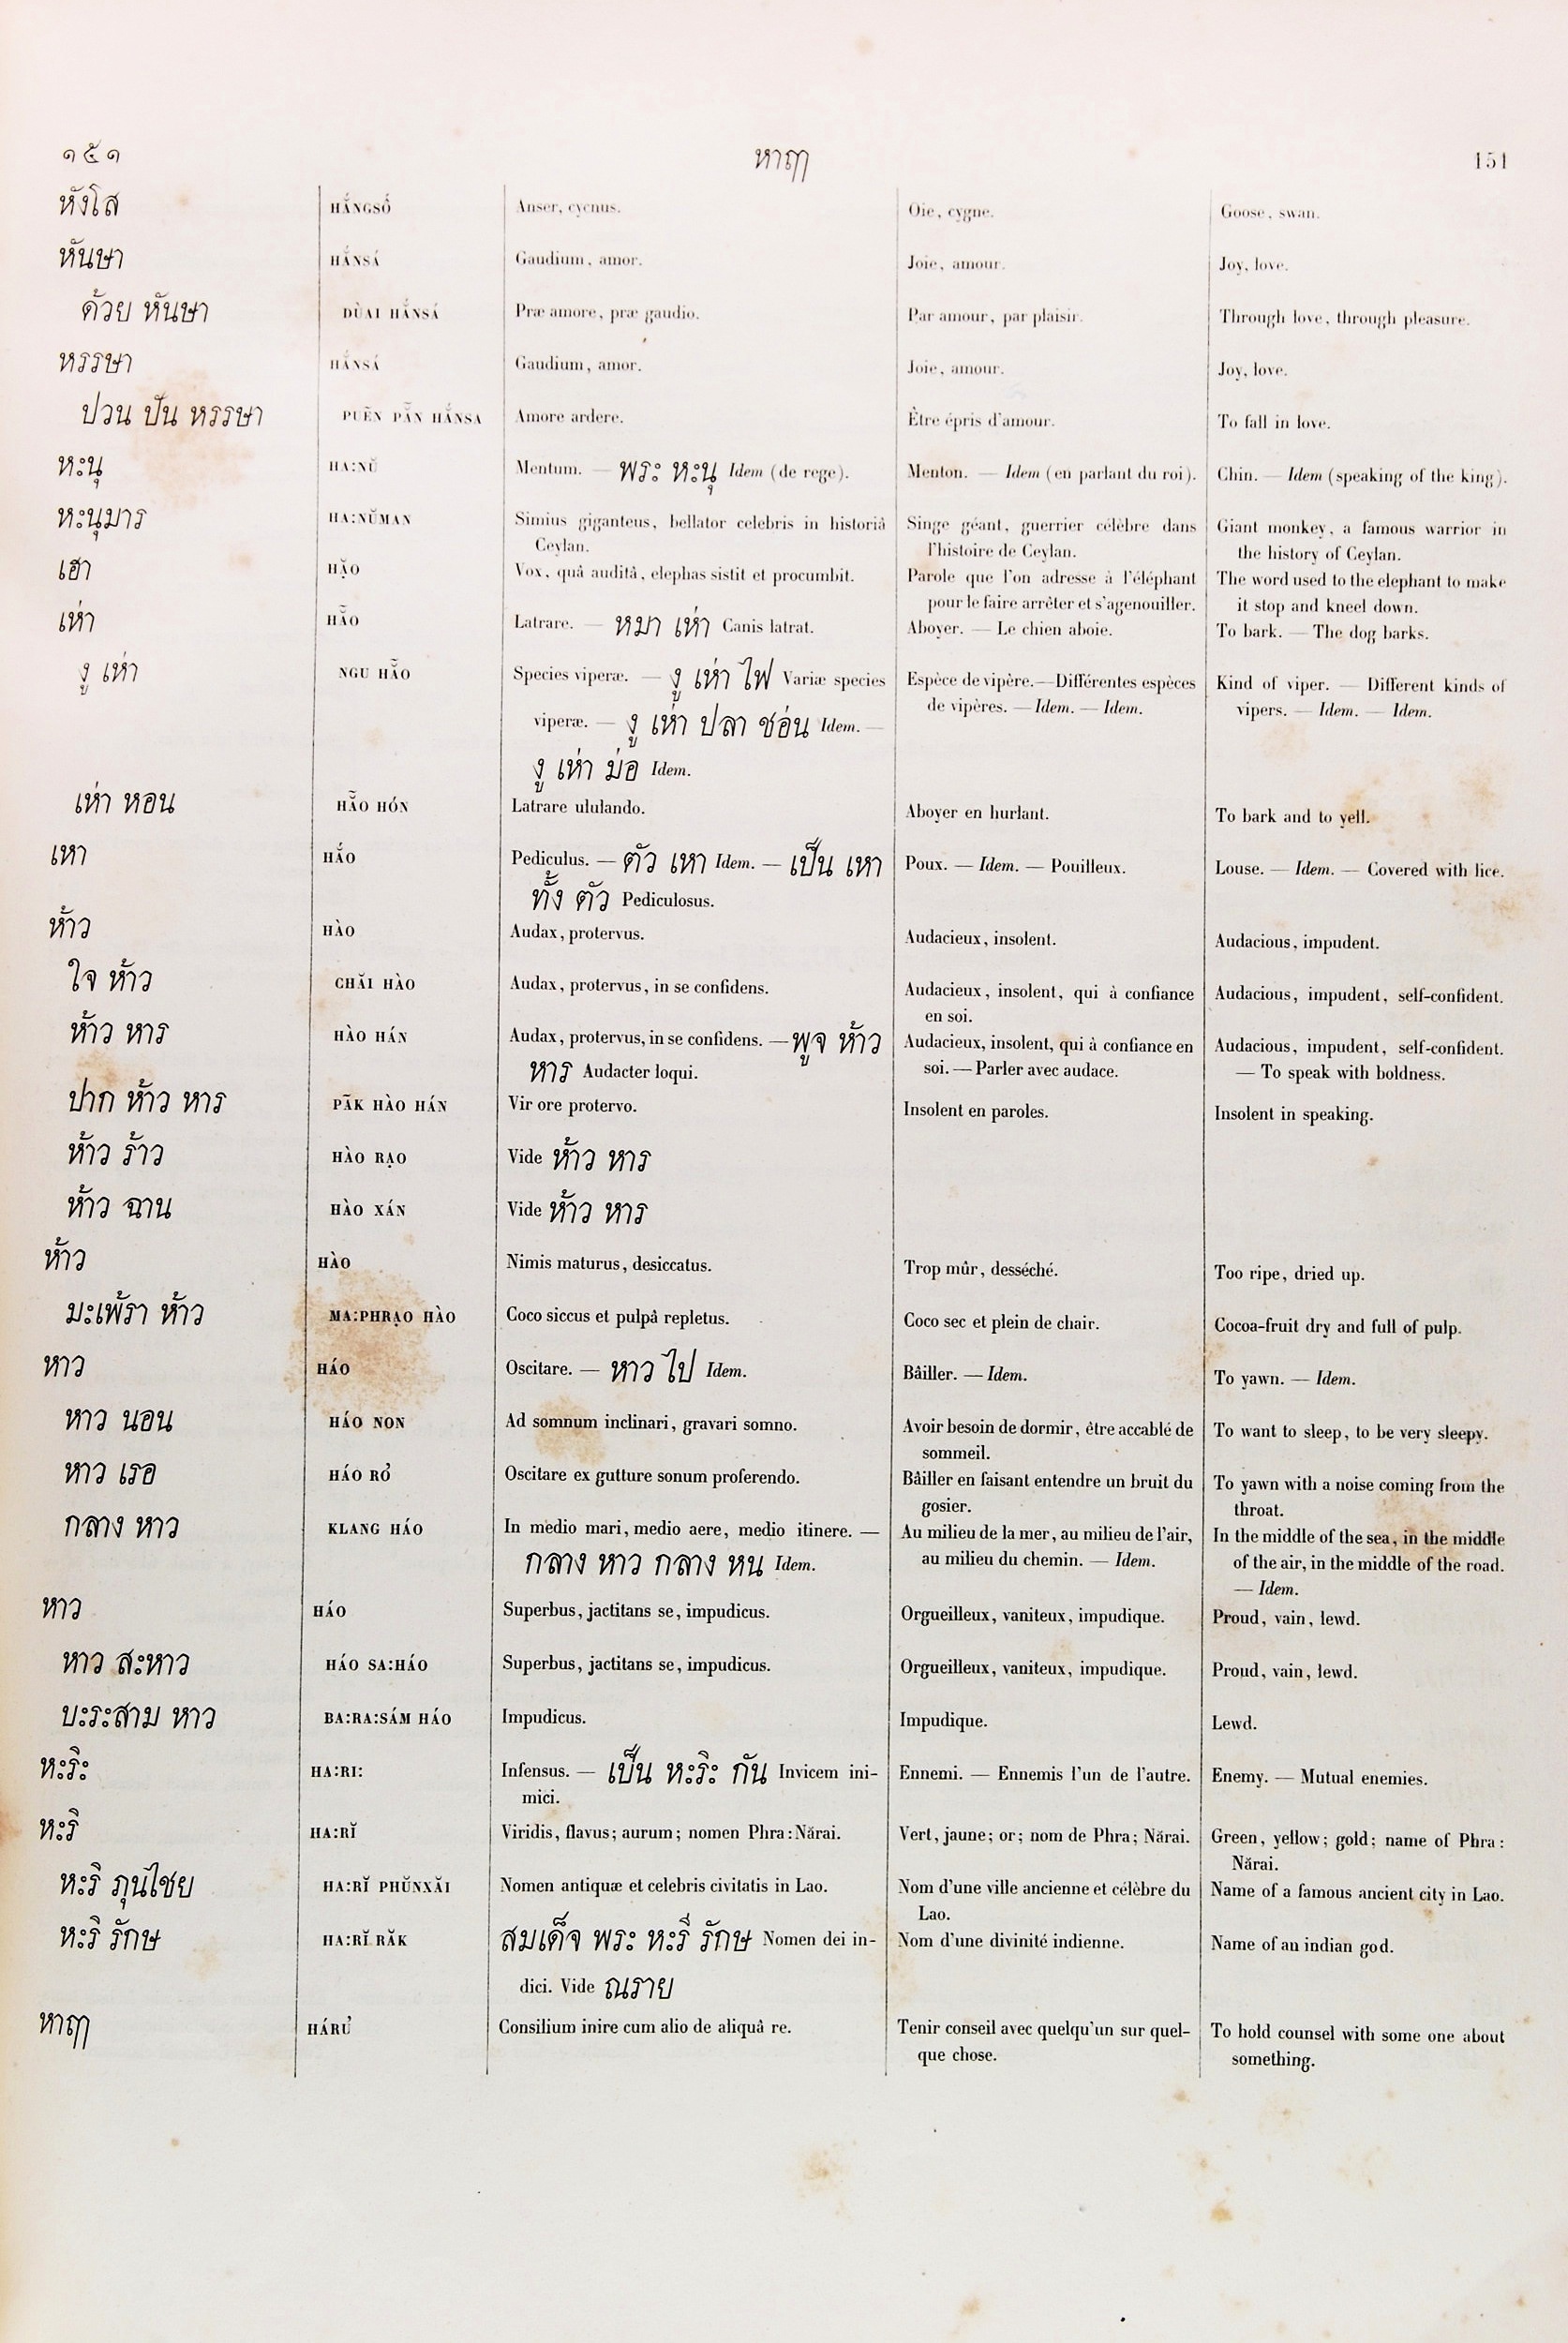 ๑๕๑ หาฤๅ 151
หังโส HẮNGSỐ Anser, cycnus. Oie, cygne. Goose, swan.
หันษา HẮNSÁ Gaudium, amor. Joie, amour. Joy, love.
ด้วย หันษา DÙAI HẮNSÁ Præ amore, præ gaudio. Par amour, par plaisir. Through love, through pleasure.
หรรษา HẮNSÁ Gaudium, amor. Joie, amour. Joy, love.
ปวน ปั่น หรรษา PUẼN PẴN HẮNSA Amore ardere. Être épris d'amour. To fall in love.
หะนุ HA:NŬ Mentum. — พระ หะนุ Idem (de rege). Menton. — Idem (en parlant du roi). Chin. — Idem (speaking of the king).
หะนุมาร HA:NŬMAN Simius giganteus, bellator celebris in historiâ Singe géant, guerrier célèbre dans Giant monkey, a famous warrior in
Ceylan. l'histoire de Ceylan. the history of Ceylan.
เฮา HẶO Vox, quâ auditâ, elephas sistit et procumbit. Parole que l'on adresse à l'éléphant The word used to the elephant to make
pour le faire arrêter et s'agenouiller. it stop and kneel down.
เห่า HẴO Latrare. — หมา เห่า Canis latrat. Aboyer. — Le chien aboie. To bark. — The dog barks.
งู เห่า NGU HẴO Species viperæ. — งู เห่า ไฟ Variæ species Espèce de vipère. — Différentes espèces Kind of viper. — Different kinds of
viperæ. — งู เห่า ปลา ช่อน Idem. — de vipères. — Idem. — Idem. vipers. — Idem. — Idem.
งู เห่า ม่อ Idem.
เห่า หอน HẴO HÓN Latrare ululando. Aboyer en hurlant. To bark and to yell.
เหา HẮO Pediculus. — ตัว เหา Idem. — เป็น เหา Poux. — Idem. — Pouilleux. Louse. — Idem. — Covered with lice.
ทั้ง ตัว Pediculosus.
ห้าว HÀO Audax, protervus. Audacieux, insolent. Audacious, impudent.
ใจ ห้าว CHĂI HÀO Audax, protervus, in se confidens. Audacieux, insolent, qui à confiance Audacious, impudent, self-confident.
en soi.
ห้าว หาร HÀO HÁN Audax, protervus, in se confidens. — พูจ ห้าว Audacieux, insolent, qui à confiance en Audacious, impudent, self-confident.
หาร Audacter loqui. soi. — Parler avec audace. — To speak with boldness.
ปาก ห้าว หาร PÃK HÀO HÁN Vir ore protervo. Insolent en paroles. Insolent in speaking.
ห้าว ร้าว HÀO RẠO Vide ห้าว หาร
ห้าว ฉาน HÀO XÁN Vide ห้าว หาร
ห้าว HÀO Nimis maturus, desiccatus. Trop mûr, desséché. Too ripe, dried up.
มะเพ้รา ห้าว MA:PHRẠO HÀO Coco siccus et pulpâ repletus. Coco sec et plein de chair. Cocoa-fruit dry and full of pulp.
หาว HÁO Oscitare. — หาว ไป Idem. Bâiller. — Idem. To yawn. — Idem.
หาว นอน HÁO NON Ad somnum inclinari, gravari somno. Avoir besoin de dormir, être accablé de To want to sleep, to be very sleepy.
sommeil.
หาว เรอ HÁO RỞ Oscitare ex gutture sonum proferendo. Bâiller en faisant entendre un bruit du To yawn with a noise coming from the
gosier. throat.
กลาง หาว KLANG HÁO In medio mari, medio aere, medio itinere. — Au milieu de la mer, au milieu de l'air, In the middle of the sea, in the middle
กลาง หาว กลาง หน Idem. au milieu du chemin. — Idem. of the air, in the middle of the road.
— Idem.
หาว HÁO Superbus, jactitans se, impudicus. Orgueilleux, vaniteux, impudique. Proud, vain, lewd.
หาว สะหาว HÁO SA:HÁO Superbus, jactitans se, impudicus. Orgueilleux, vaniteux, impudique. Proud, vain, lewd.
บะระสาม หาว BA:RA:SÁM HÁO Impudicus. Impudique. Lewd.
หะริะ HA:RI: Infensus. — เป็น หะริะ กัน Invicem ini- Ennemi. — Ennemis l'un de l'autre. Enemy. — Mutual enemies.
mici.
หะริ HA:RĬ Viridis, flavus; aurum; nomen Phra:Nărai. Vert, jaune; or; nom de Phra; Nărai. Green, yellow; gold; name of Phra:
Nărai.
หะริ ภุนไชย HA:RĬ PHŬNXĂI Nomen antiquæ et celebris civitatis in Lao. Nom d'une ville ancienne et célèbre du Name of a famous ancient city in Lao.
Lao.
หะริ รักษ HA:RĬ RĂK สมเด็จ พระ หะริ รักษ Nomen dei in- Nom d'une divinité indienne. Name of an indian god.
dici. Vide ณราย
หาฤๅ HÁRỦ Consilium inire cum alio de aliquâ re. Tenir conseil avec quelqu'un sur quel- To hold counsel with some one about
que chose. something.